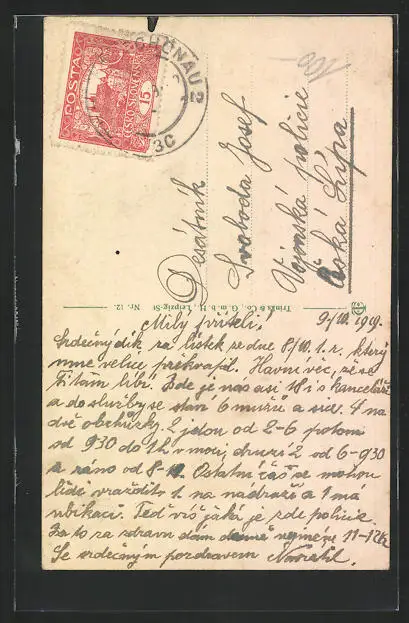 SCHÖNAU 2
POSTA
ČESKO-SLOVENSKÁ
15
3C
100
Desátník
Svoboda Josef
Vojenská policie
Česká Lípa
Trinks & Co., G. m. b. H., Leipzig-St Nr. 12.
Milý příteli! 9/10. 1919.
Srdečný dík za lístek ze dne 8/10. t. r. který
mne velice překvapil. Hlavní věc, že se
Ti tam líbí. Zde je nás asi 18 i s kanceláří
a do služby se staví 6 mužů a sice 4 na
dvě obchůzky. 2 jdou od 2-6 potom
od 930 do 1h v noci, druzí 2 od 6-930
a ráno od 8- Ostatní čas se mohou
lidi 1 na nádraží a 1 má
ubikaci. Teď víš jaká je zde policie.
Za to za zdravu dám denně nejméně 11-12h
Se srdečným pozdravem Navrátil